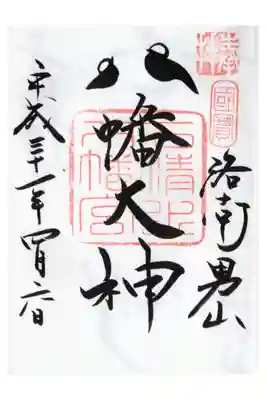 國寶
洛南男山
八幡大神
石清水八幡宮
平成三十一年四月六日